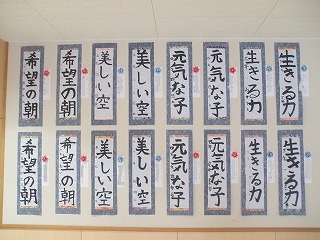 生きる力
生きる力
元気な子
元気な子
美しい空
美しい空
希望の朝
希望の朝
生きる力
生きる力
元気な子
元気な子
美しい空
美しい空
希望の朝
希望の朝